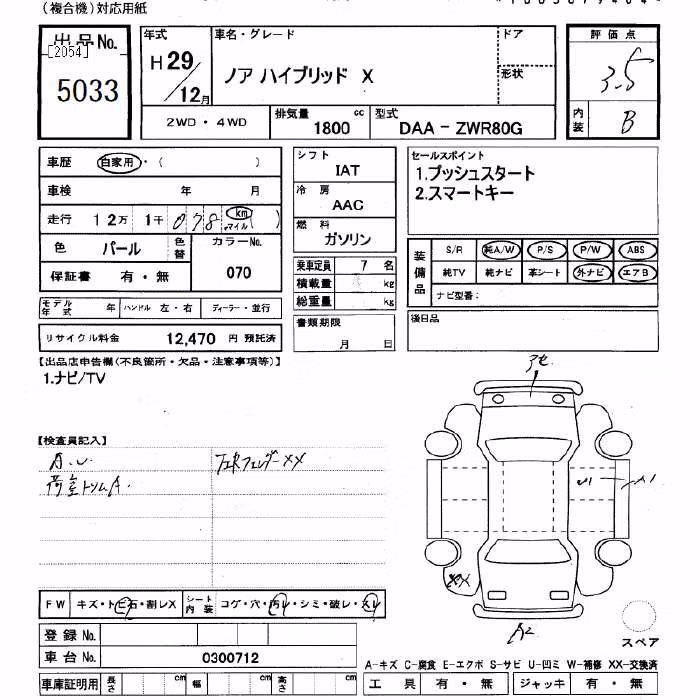 (複合機)対応用紙
出品No.
[2054]
5033
年式
H29/12月
車名・グレード
ノア ハイブリッド X
ドア
形状
評価点
3.5
内装
B
2WD・4WD
排気量
1800 cc
型式
DAA-ZWR80G
車歴 自家用・( )
車検 年 月
走行 12万 1千 078 km マイル ( )
色 パール 色替
カラーNo.
070
保証書 有・無
シフト
IAT
冷房
AAC
燃料
ガソリン
乗車定員 7 名
積載量 kg
総重量 kg
セールスポイント
1.プッシュスタート
2.スマートキー
装備品
S/R 純A/W P/S P/W ABS
純TV 純ナビ 革シート 外ナビ エアB
ナビ型番:
モデル年式 年 ハンドル 左・右 ディーラー・並行
リサイクル料金 12,470 円 預託済
書類期限
月 日
後日品
【出品店申告欄(不良箇所・欠品・注意事項等)】
1.ナビ/TV
【検査員記入】
A.U
荷室トリムA.
左Rフェンダーxx
U1
A1
XX
A2
FW キズ・トビ石・割レX
シート内装 コゲ・穴・汚レ・シミ・破レ・スレ
登録No.
車台No. 0300712
スペア
A-キズ C-腐食 E-エクボ S-サビ U-凹ミ W-補修 XX-交換済
車庫証明用 長さ cm 幅 cm 高さ cm
工具 有・無 ジャッキ 有・無